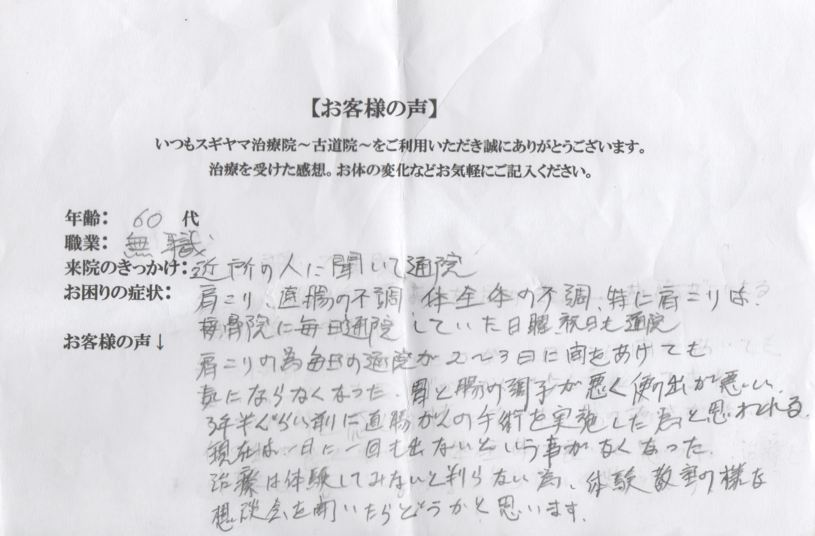 【お客様の声】
いつもスギヤマ治療院～古道院～をご利用いただき誠にありがとうございます。
治療を受けた感想。お体の変化などお気軽にご記入ください。
年齢： 60 代
職業： 無職
来院のきっかけ：近所の人に聞いて通院
お困りの症状： 肩こり、直腸の不調、体全体の不調、特に肩こりは、
骨院に毎日通院 していた日曜祝日も通院
お客様の声↓
肩こりの為毎日の通院が2～3日に間をあけても
気にならなくなった。胃と腸の調子が悪く便の出が悪い、
3年半ぐらい前に直腸がんの手術を実施した為と思われる。
現在は一日に一回も出ないという事がなくなった。
治療は体験してみないと判らない為、体験教室の様な
想談会を開いたらどうかと思います。